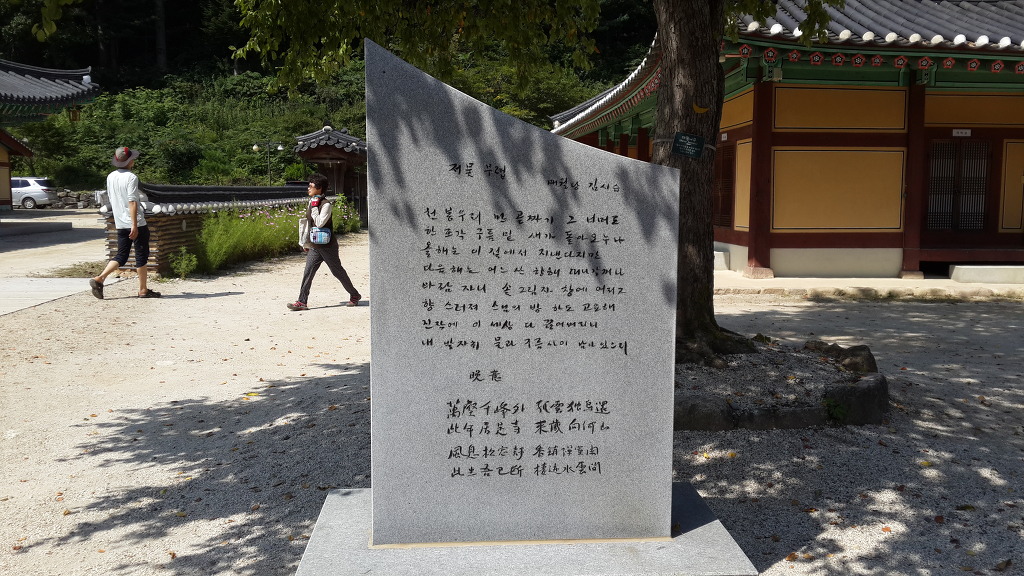 저물 무렵 매월당 김시습
천 봉우리 만 골짜기 그 너머로
한 조각 구름 밑 새가 돌아오누나
올해는 이 절에서 지낸다지만
다음 해는 어느 산 향해 떠나갈거나
바람 자니 솔 그림자 창에 어리고
향 스러져 스님의 방 하도 고요해
진작에 이 세상 다 끊어버리니
내 발자취 물과 구름사이 남아있으리
晩意
萬壑千峰外 孤雲独鳥還
此年居是寺 來歲向何山
風息松窓静 香銷禅室閑
此生吾已断 棲迹水雲間